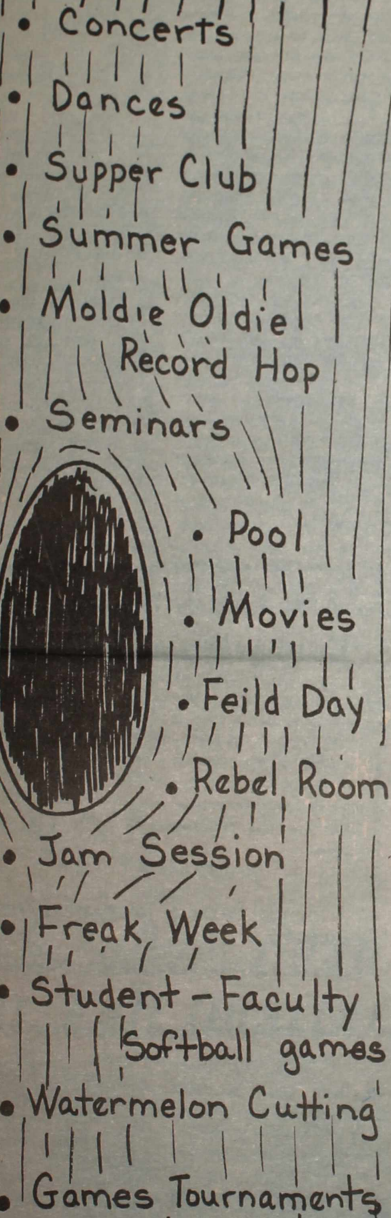 • Concerts
• Dances
• Supper Club
• Summer Games
• Moldie Oldie
Record Hop
• Seminars
• Pool
• Movies
• Feild Day
• Rebel Room
• Jam Session
• Freak Week
• Student - Faculty
Softball games
• Watermelon Cutting
• Games Tournaments